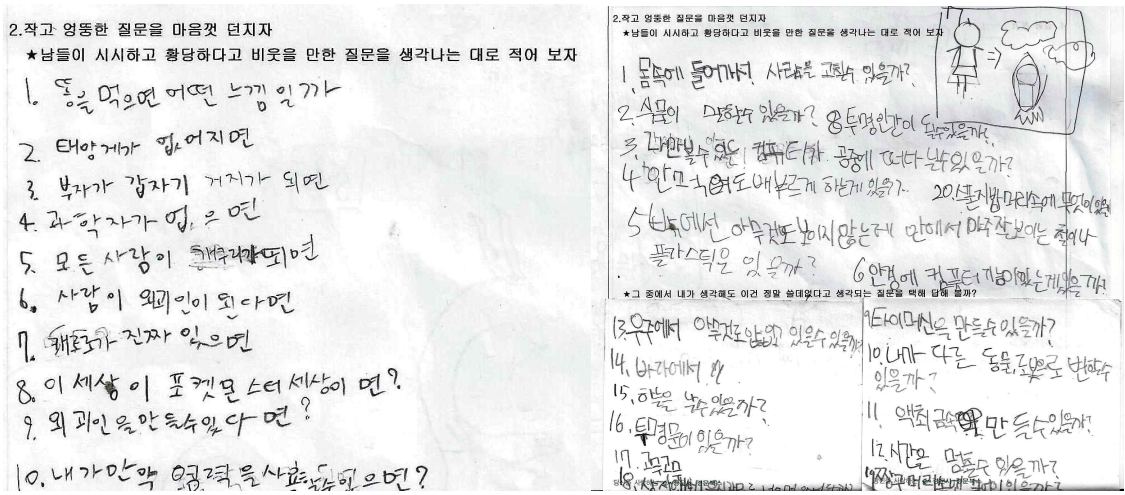 2.작고 엉뚱한 질문을 마음껏 던지자
★남들이 시시하고 황당하다고 비웃을 만한 질문을 생각나는 대로 적어 보자
1. 똥을 먹으면 어떤 느낌일까
2. 태양계가 없어지면
3. 부자가 갑자기 거지가 되면
4. 과학자가 업으면
5. 모든 사람이 되면
6. 사람이 외괴인이 된다면
7. 진짜 있으면
8. 이 세상이 포켓몬스터 세상이 면?
9. 외괴인을 만들수있다면?
10. 내가만약 있으면?
2.작고 엉뚱한 질문을 마음껏 던지자
★남들이 시시하고 황당하다고 비웃을 만한 질문을 생각나는 대로 적어 보자
1. 몸속에 들어가서 사람을 고칠수 있을까?
2. 식물이 말할수 있을까? 8 투명인간이 될수있을까?
3. 컴퓨터가 공중에 떠다닐수있을까?
4 안먹어도 배부르게 하는게 있을까
20. 스폰지밥머리속에 무엇이 있을
5 밖에선 아무것도 보이지 않는데 안에서 아주잘보이는 철이나
플라스틱은 있을까?
6 안경에 컴퓨터 있을까?
★그 중에서 내가 생각해도 이건 정말 쓸데없다고 생각되는 질문을 택해 답해 볼까?
13. 우주에서 아무것도 있을수 있을까?
14. 바다에서 "
15. 하늘을 날수있을까?
16. 투명문이있을까?
17.
9. 타이머신을 만들수 있을까?
10. 내가 다른 동물로 변할수
있을까?
11. 액체금속 만들수있을까?
12. 시간을 멈출수 있을까?